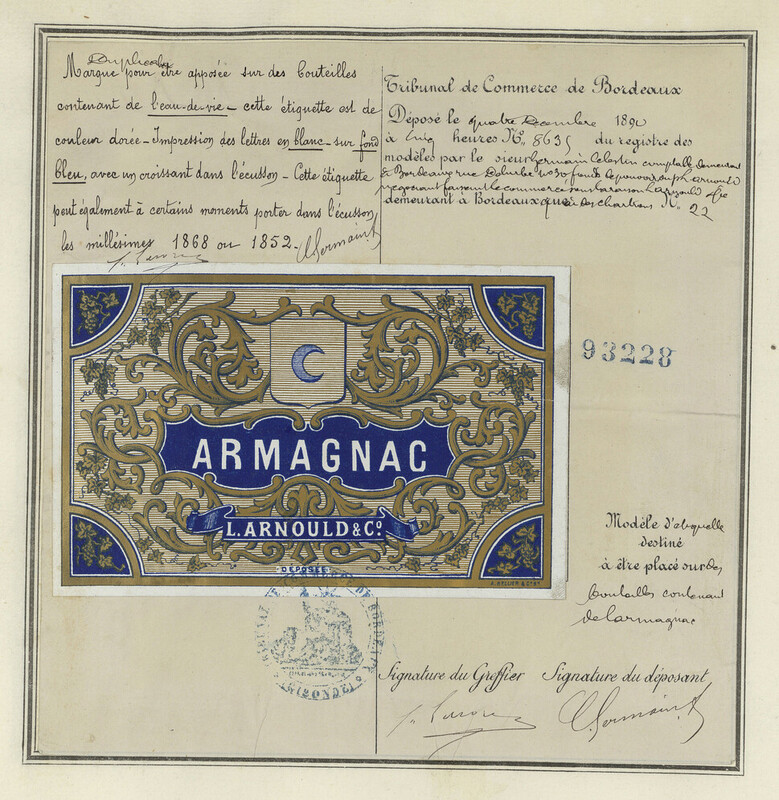 Duplicata
Marque pour être apposée sur des Bouteilles
contenant de l'eau-de-vie - cette étiquette est de
couleur dorée - Impression des lettres en blanc - sur fond
bleu, avec un croissant dans l'écusson - Cette étiquette
peut également à certains moments porter dans l'écusson,
les millésimes 1868 ou 1852.
C Germain
Tribunal de Commerce de Bordeaux
Déposé le quatre Décembre 189
à cinq heures N° 8635 du registre des
modèles par le sieur Germain Celestin comptable demeurant
à Bordeaux rue Delurbe N° 30 fondé de pouvoirs de L. Arnould
négociant faisant le commerce sous la raison L. Arnould & Cie
demeurant à Bordeaux quai des chartrons N° 22
ARMAGNAC
L. ARNOULD & Co.
DÉPOSÉE
93228
Modèle d'etiquette
destiné
à être placé sur des
bouteilles contenant
de l'armagnac
TRIBUNAL DE COMMERCE DE BORDEAUX
(GIRONDE)
Signature du Greffier
Signature du déposant
C Germain